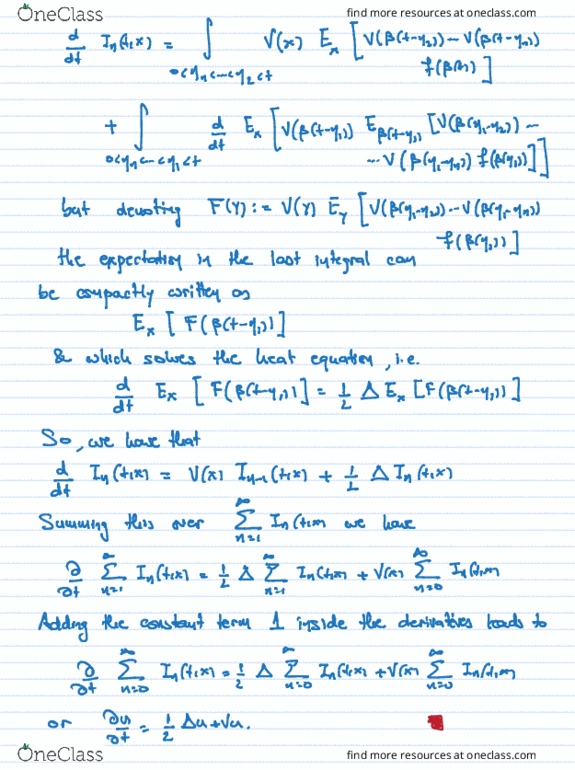 OneClass
find more resources at oneclass.com
d/dt Iₙ(t,x) = ∫ V(x) Eₓ [ V(β(t-η₂)) ⋯ V(β(t-ηₙ))
0<ηₙ<⋯<η₂<t
f(β(t)) ]
+ ∫ d/dt Eₓ [ V(β(t-η₁)) E_β(t-η₁) [ V(β(η₁-η₂)) ⋯
0<ηₙ<⋯<η₁<t
⋯ V(β(η₁-ηₙ)) f(β(η₁)) ] ]
but denoting F(Y) := V(Y) E_Y [ V(β(η₁-η₂)) ⋯ V(β(η₁-ηₙ))
f(β(η₁)) ]
the expectation in the last integral can
be compactly written as
Eₓ [ F(β(t-η₁)) ]
& which solves the heat equation, i.e.
d/dt Eₓ [ F(β(t-η₁)) ] = 1/2 Δ Eₓ [ F(β(t-η₁)) ]
So, we have that
d/dt Iₙ(t,x) = V(x) Iₙ₋₁(t,x) + 1/2 Δ Iₙ(t,x)
Summing this over ∑_{n=1}^∞ Iₙ(t,x) we have
∂/∂t ∑_{n=1}^∞ Iₙ(t,x) = 1/2 Δ ∑_{n=1}^∞ Iₙ(t,x) + V(x) ∑_{n=0}^∞ Iₙ(t,x)
Adding the constant term 1 inside the derivatives leads to
∂/∂t ∑_{n=0}^∞ Iₙ(t,x) = 1/2 Δ ∑_{n=0}^∞ Iₙ(t,x) + V(x) ∑_{n=0}^∞ Iₙ(t,x)
or ∂u/∂t = 1/2 Δu + Vu.
OneClass
find more resources at oneclass.com